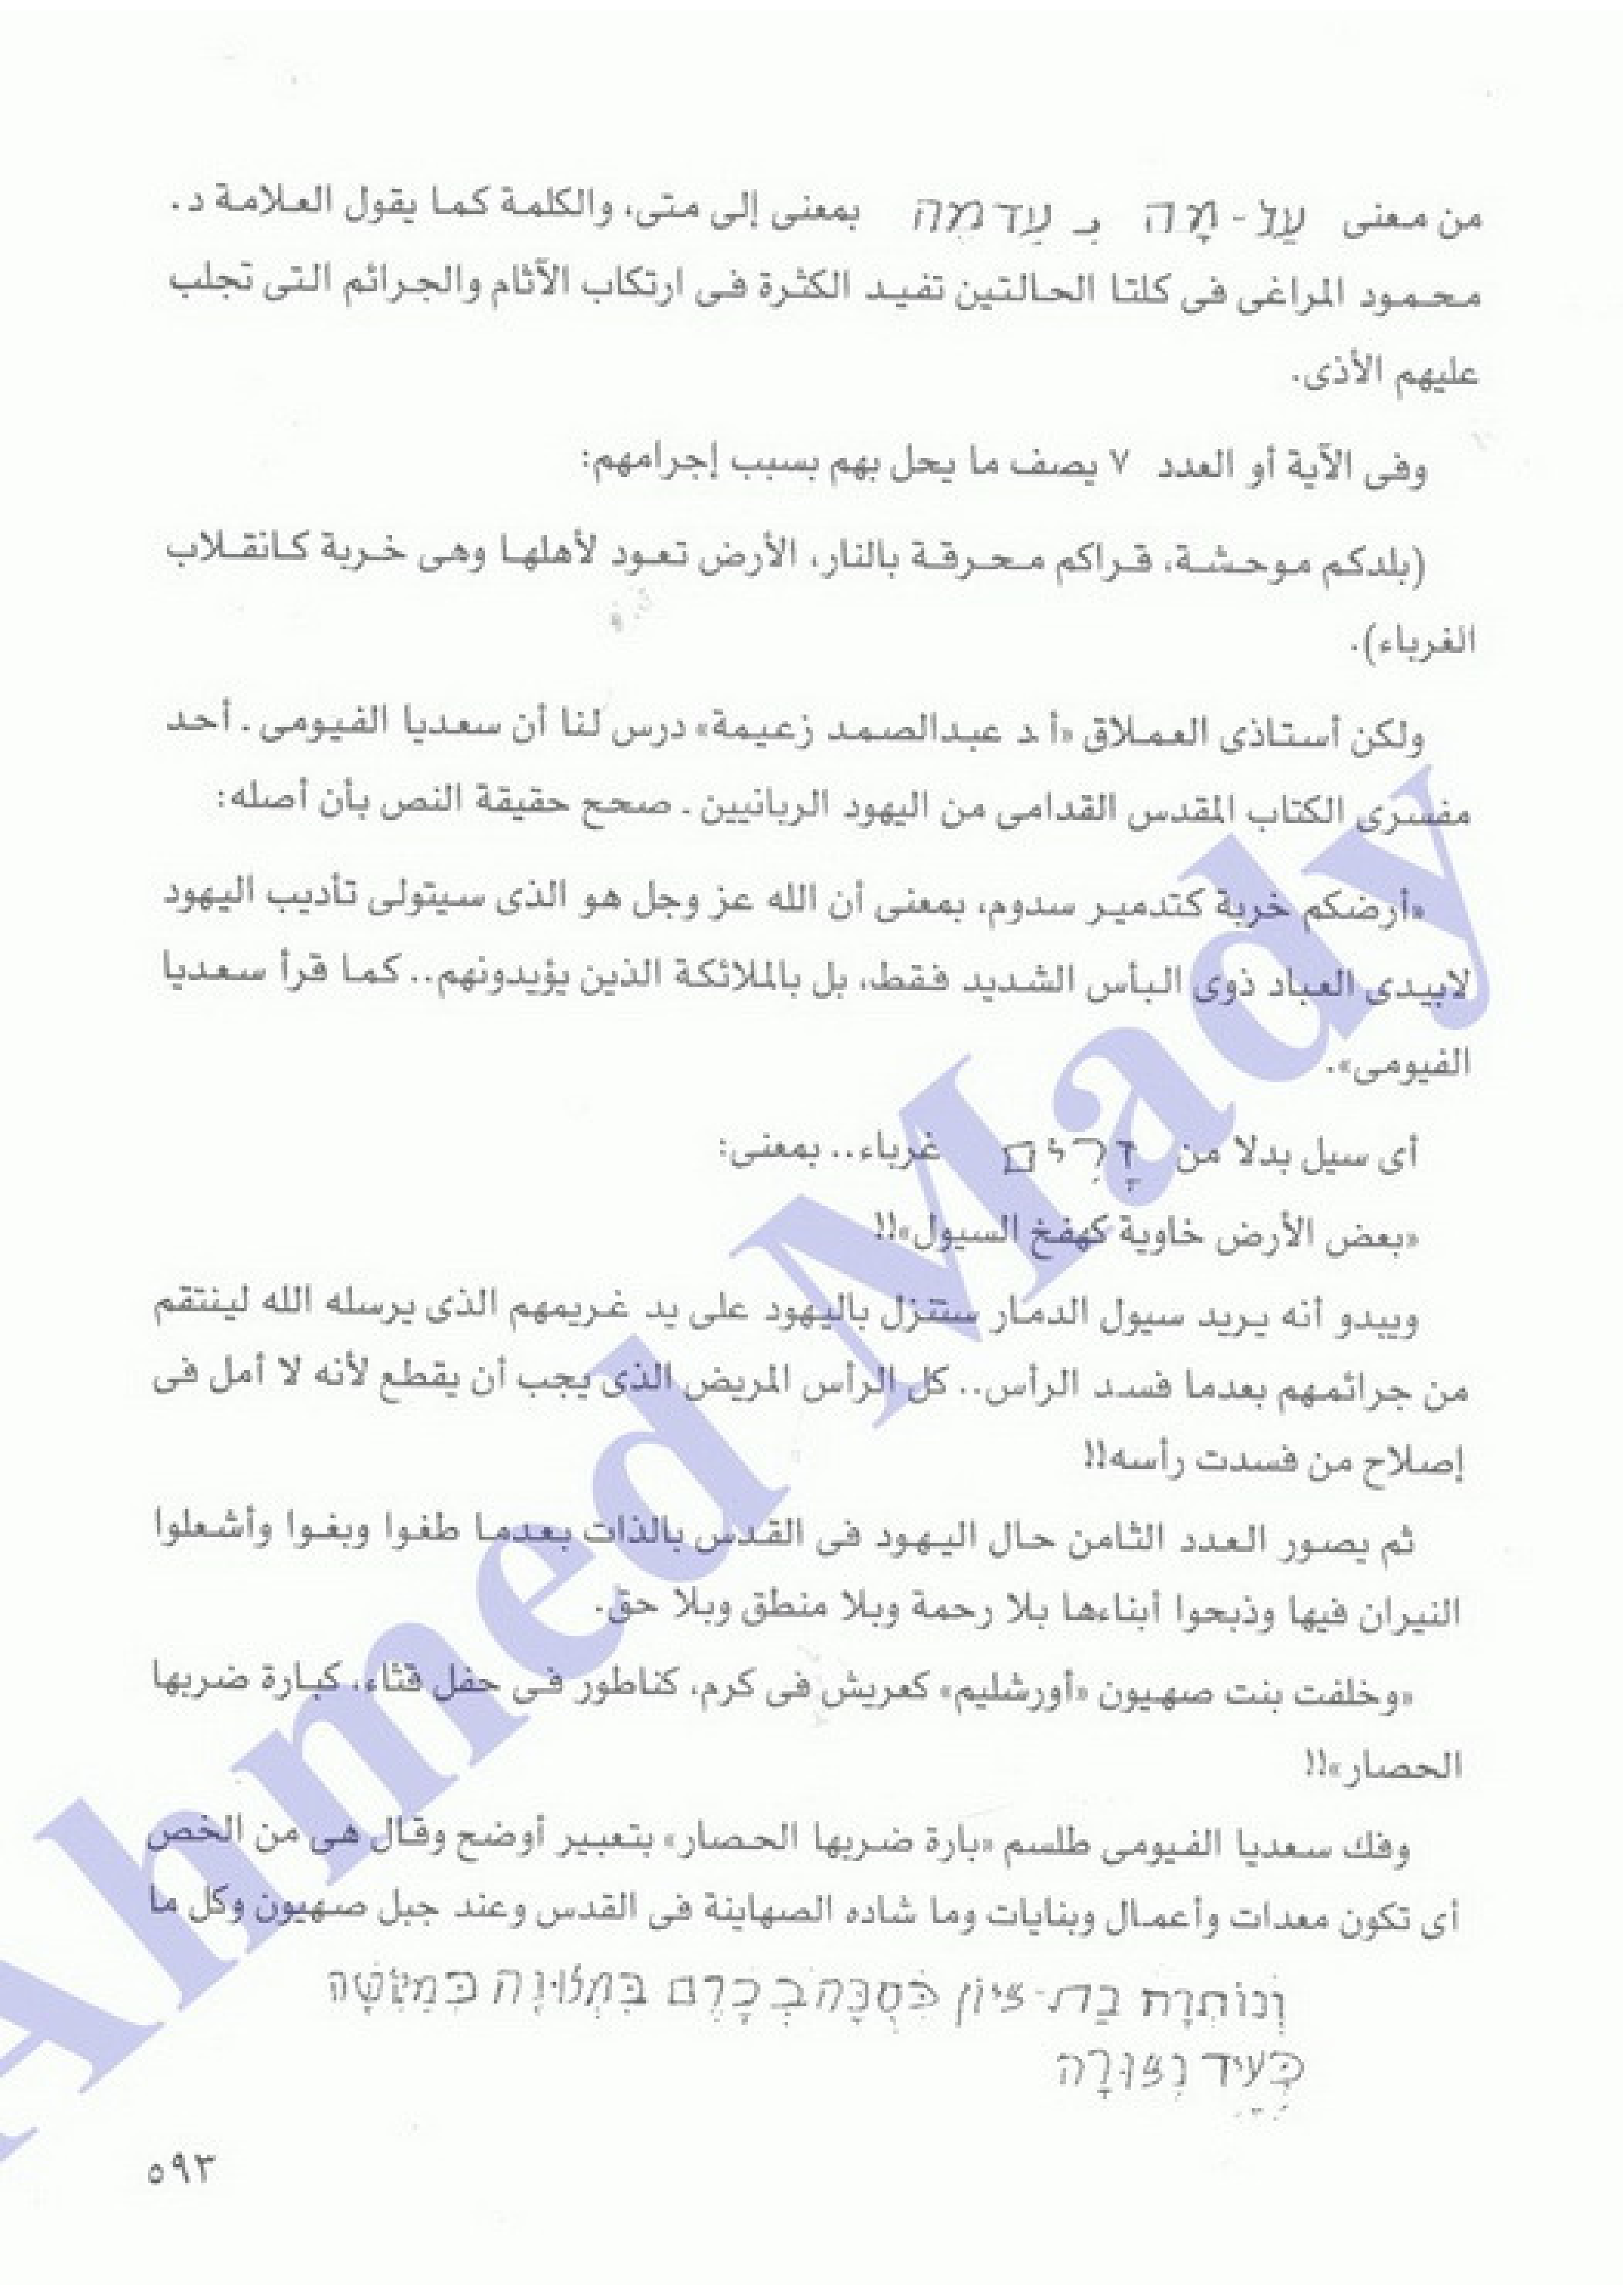 من معنى עַל-מָה بـ עַד מַה بمعنى إلى متى، والكلمة كما يقول العلامة د.
محمود المراغى فى كلتا الحالتين تفيد الكثرة فى ارتكاب الآثام والجرائم التى تجلب
عليهم الأذى.
وفى الآية أو العدد ٧ يصف ما يحل بهم بسبب إجرامهم:
(بلدكم موحشة، قراكم محرقة بالنار، الأرض تعود لأهلها وهى خربة كانقلاب
الغرباء).
ولكن أستاذى العملاق «أ.د عبدالصمد زعيمة» درس لنا أن سعديا الفيومى ـ أحد
مفسرى الكتاب المقدس القدامى من اليهود الربانيين ـ صحح حقيقة النص بأن أصله:
«أرضكم خربة كتدمير سدوم، بمعنى أن الله عز وجل هو الذى سيتولى تأديب اليهود
لابيدى العباد ذوى البأس الشديد فقط، بل بالملائكة الذين يؤيدونهم.. كما قرأ سعديا
الفيومى».
أى سيل بدلا من זָרִים غرباء.. بمعنى:
«بعض الأرض خاوية كهفخ السيول»!!
ويبدو أنه يريد سيول الدمار ستنزل باليهود على يد غريمهم الذى يرسله الله لينتقم
من جرائمهم بعدما فسد الرأس.. كل الرأس المريض الذى يجب أن يقطع لأنه لا أمل فى
إصلاح من فسدت رأسه!!
ثم يصور العدد الثامن حال اليهود فى القدس بالذات بعدما طغوا وبغوا وأشعلوا
النيران فيها وذبحوا أبناءها بلا رحمة وبلا منطق وبلا حق.
«وخلفت بنت صهيون «أورشليم» كعريش فى كرم، كناطور فى حفل قثاء، كبارة ضربها
الحصار»!!
وفك سعديا الفيومى طلسم «بارة ضربها الحصار» بتعبير أوضح وقال هى من الخص
أى تكون معدات وأعمال وبنايات وما شاده الصهاينة فى القدس وعند جبل صهيون وكل ما
וְנוֹתְרָה בַת-צִיּוֹן כְּסֻכָּה בְכָרֶם בִּמְלוּנָה בְּמִקְשָׁה
כְּעִיר נְצוּרָה
٥٩٣
Ahmed Mady